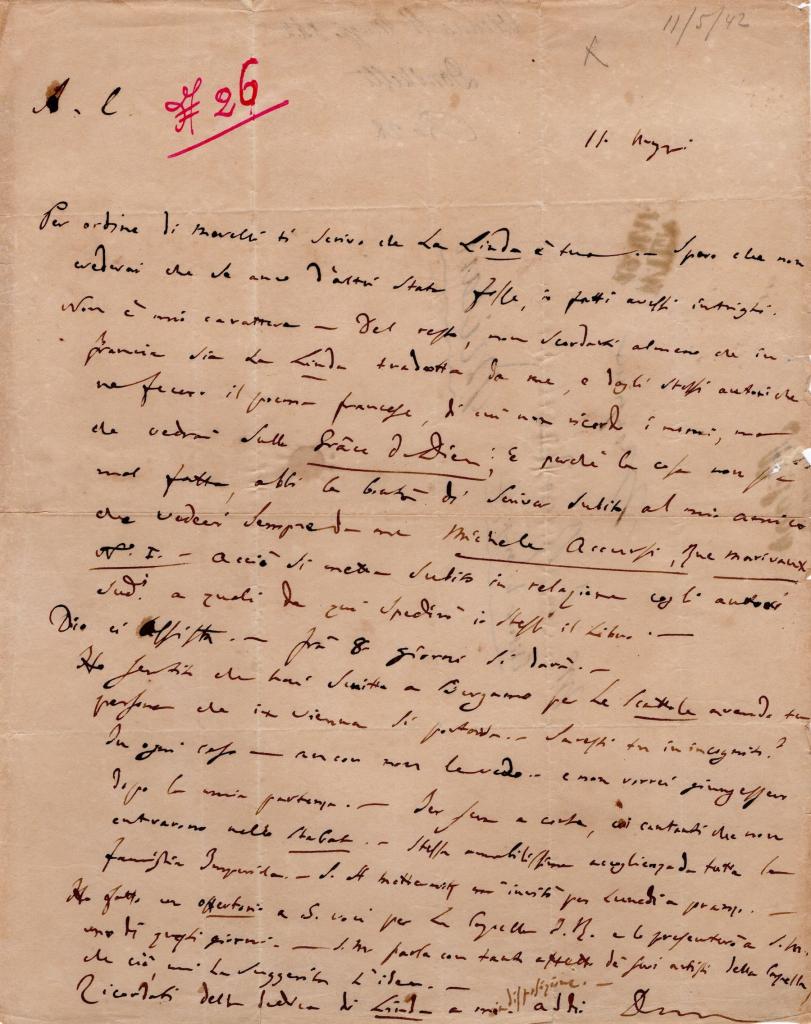 11/5/42
A. C. # 26
11. Maggi
Per ordine di Merelli ti scrivo che La Linda è tua.— Spero che non
crederai che se anco d'altri stata fosse, io fatti avessi intrighi.
Non è mio carattere — Del resto, non scordarti almeno che in
francia sia La Linda tradotta da me, e dagli stessi autori che
ne fecero il poema francese, di cui non ricordo i nomi, ma
che vedrai sulla Grâce de Dieu; E perchè la cosa non sia
mal fatta, abbi la bontà di scriver subito al mio amico
che vedesi sempre da me Michele Accursi, Rue Marivaux
N.º I.— acciò si metta subito in relazione cogli autori
sud.i a quali da qui spedirò io stesso il Libro.—
Dio ci assista.— frà 8 giorni si darà.—
Ho sentito che hai scritto a Bergamo per Le Scattole avendo tu
persona che in Vienna si portava.— Saresti tu in incognito?
In ogni caso — ancora non le vedo.. e non vorrei giungessero
dopo la mia partenza.— Jer sera a corte, coi cantanti che non
entrarono nello Stabat.— Stessa amabilissima accoglienza da tutta la
famiglia Imperiale.— S. A Metternich mi invitò per Lunedì a pranzo.—
Ho fatto un offertorio a 5. voci per La Capella I. R. e lo presenterò a S. M.
uno di questi giorni.— S. M parla con tanto affetto de suoi artisti della Capella,
che ciò, mi ha suggerito L'idea.—
Ricordati della dedica di Linda a mia disposizione.— addi